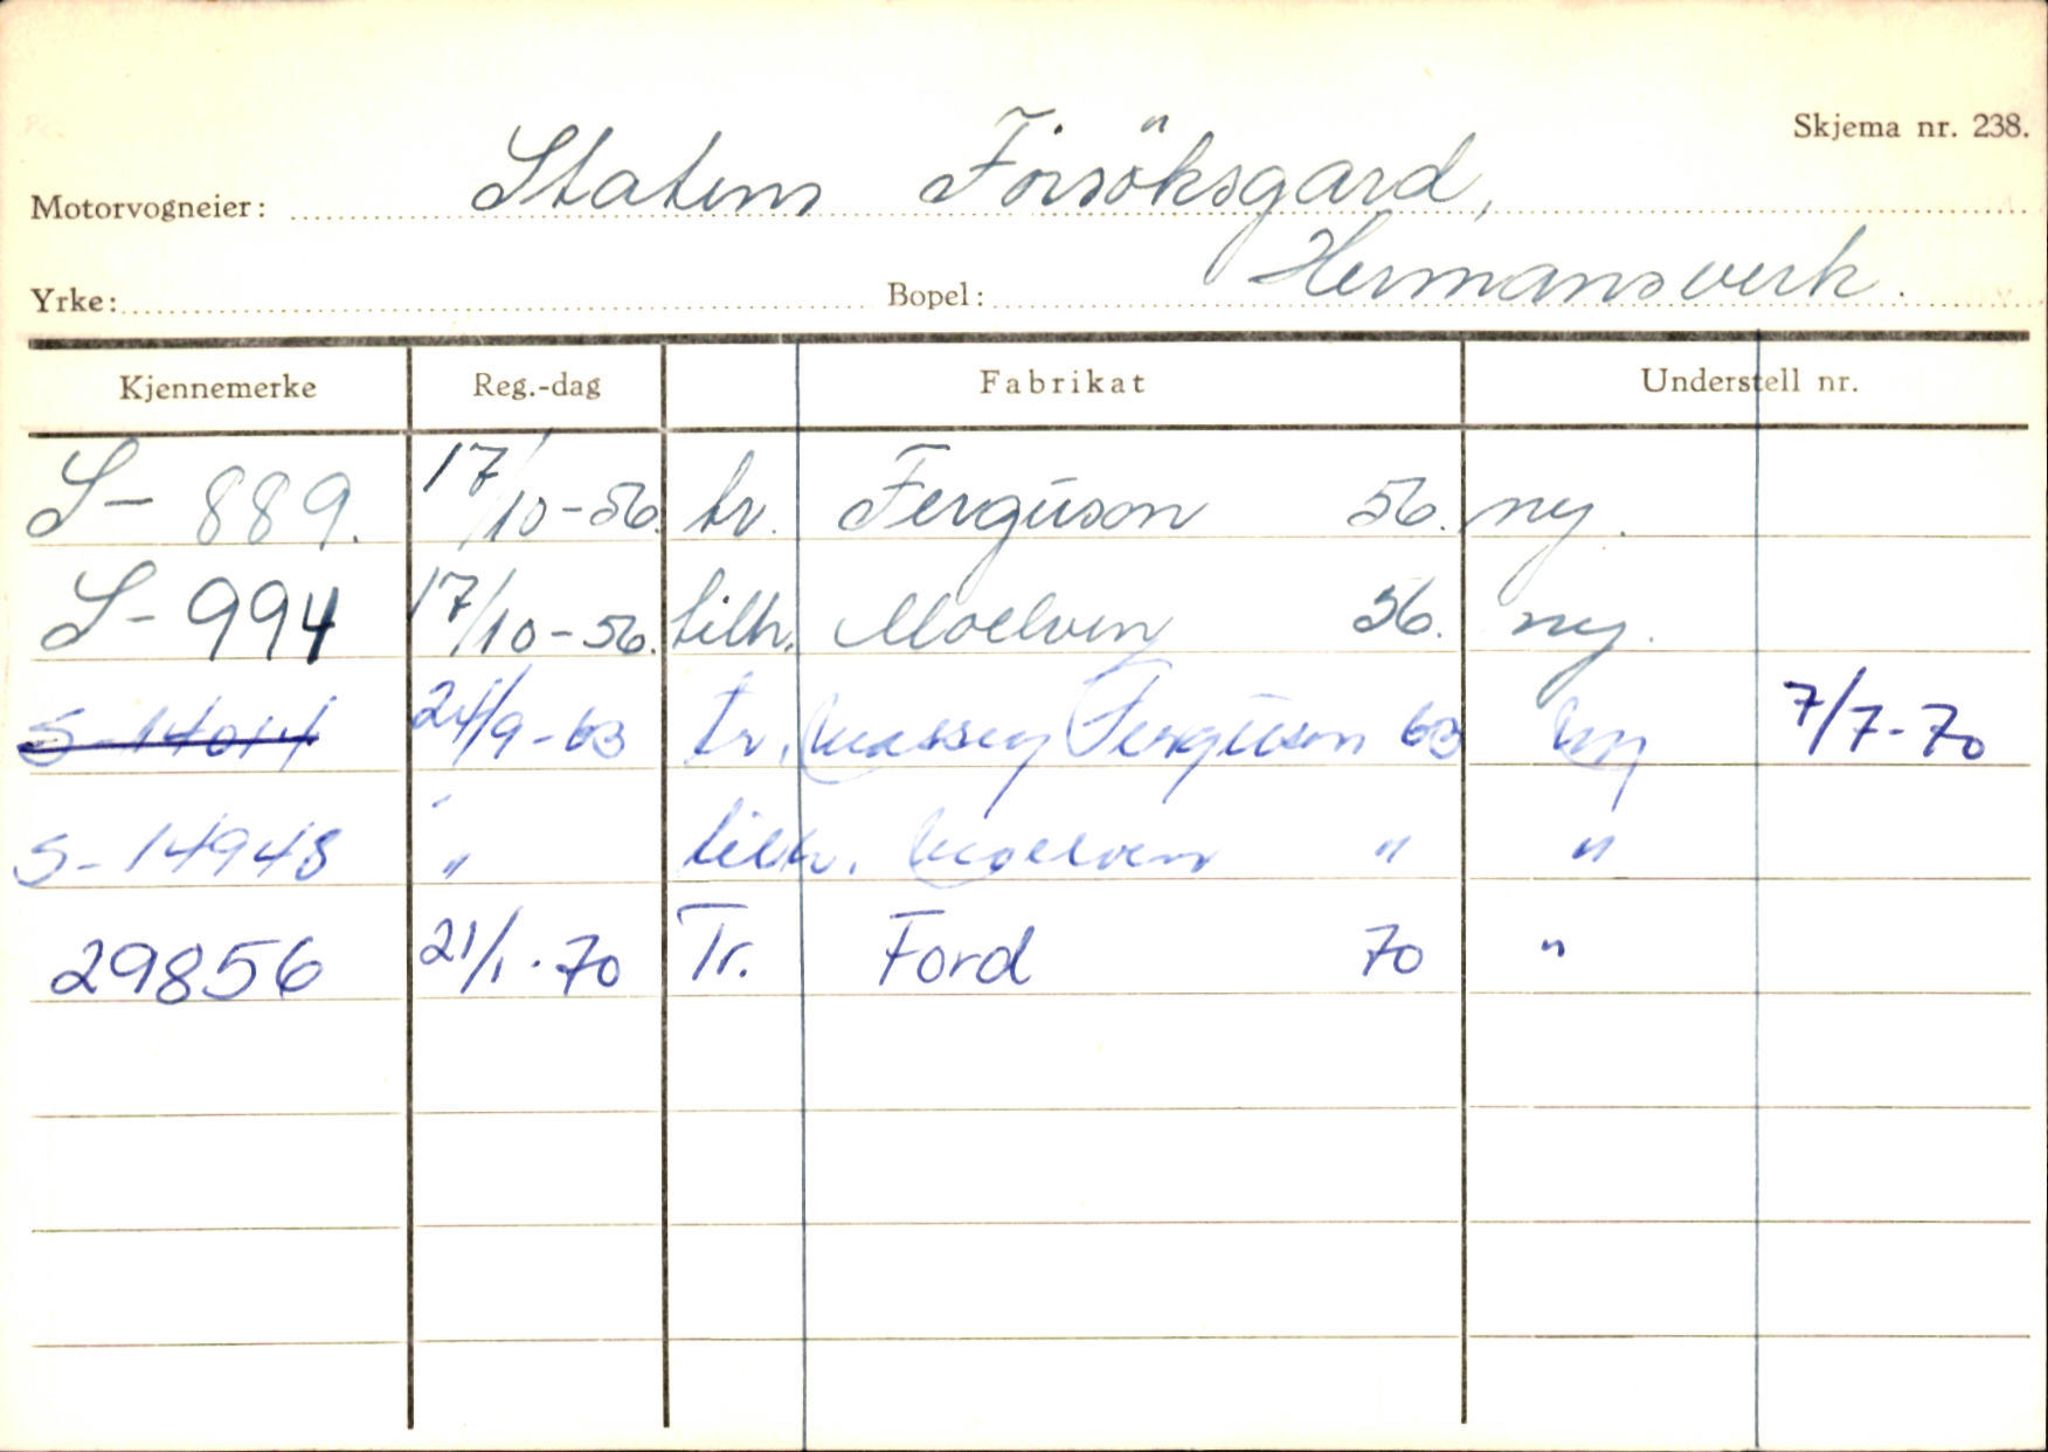 Skjema nr. 238.
Motorvogneier: Statens Försöksgard,
Yrke: Bopel: Hermansverk.
Kjennemerke Reg.-dag Fabrikat Understell nr.
S- 889. 17/10-56. tr. Ferguson 56. ny.
S- 994 17/10-56. tilh. Moelven 56. ny.
S-14014 24/9-63 tr. Massey Ferguson 63 ny 7/7-70
S-14948 " tilh. Moelven " "
29856 21/1.70 Tr. Ford 70 "